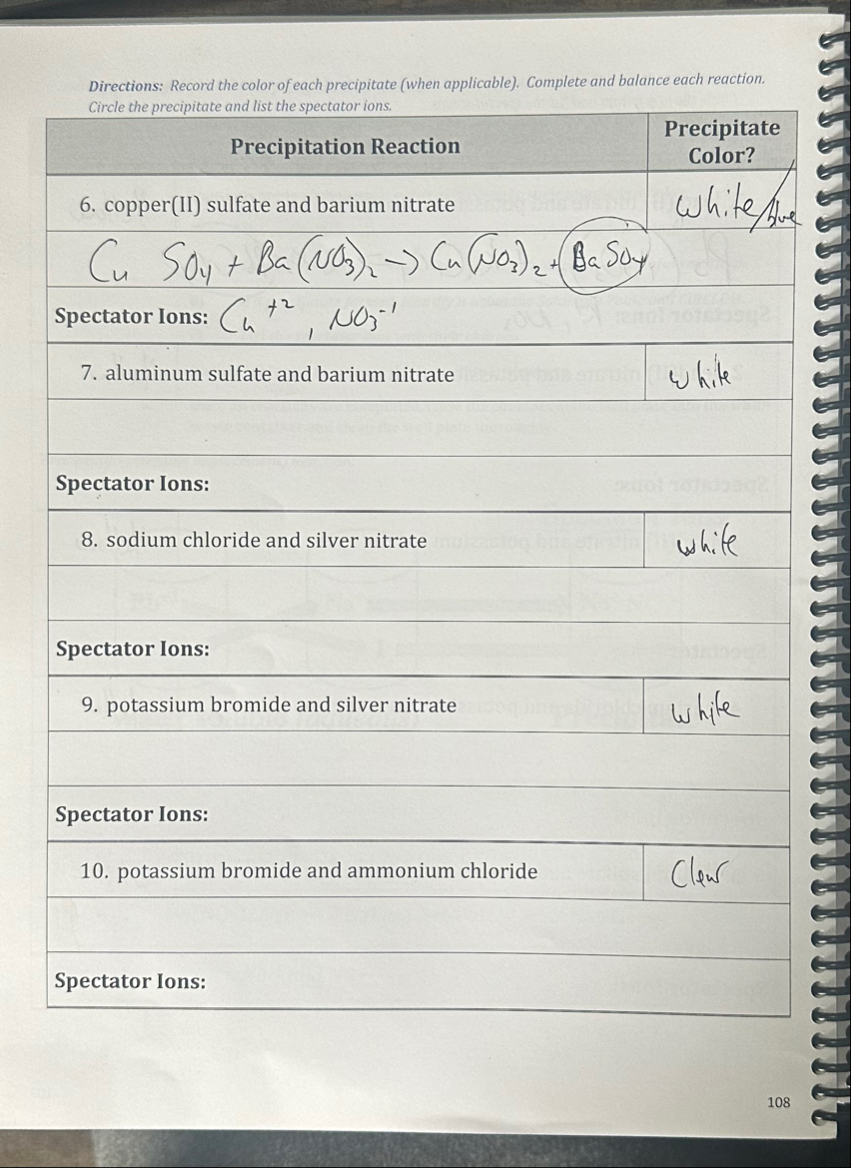 Directions: Record the color of each precipitate (when applicable). Complete and balance each reaction.
Circle the precipitate and list the spectator ions.
Precipitation Reaction
Precipitate
Color?
6. copper(II) sulfate and barium nitrate
white/blue
Cu SO4 + Ba(NO3)2 → Cu(NO3)2 + BaSO4
Spectator Ions: Cu+2, NO3-1
7. aluminum sulfate and barium nitrate
white
Spectator Ions:
8. sodium chloride and silver nitrate
white
Spectator Ions:
9. potassium bromide and silver nitrate
white
Spectator Ions:
10. potassium bromide and ammonium chloride
Clear
Spectator Ions:
108